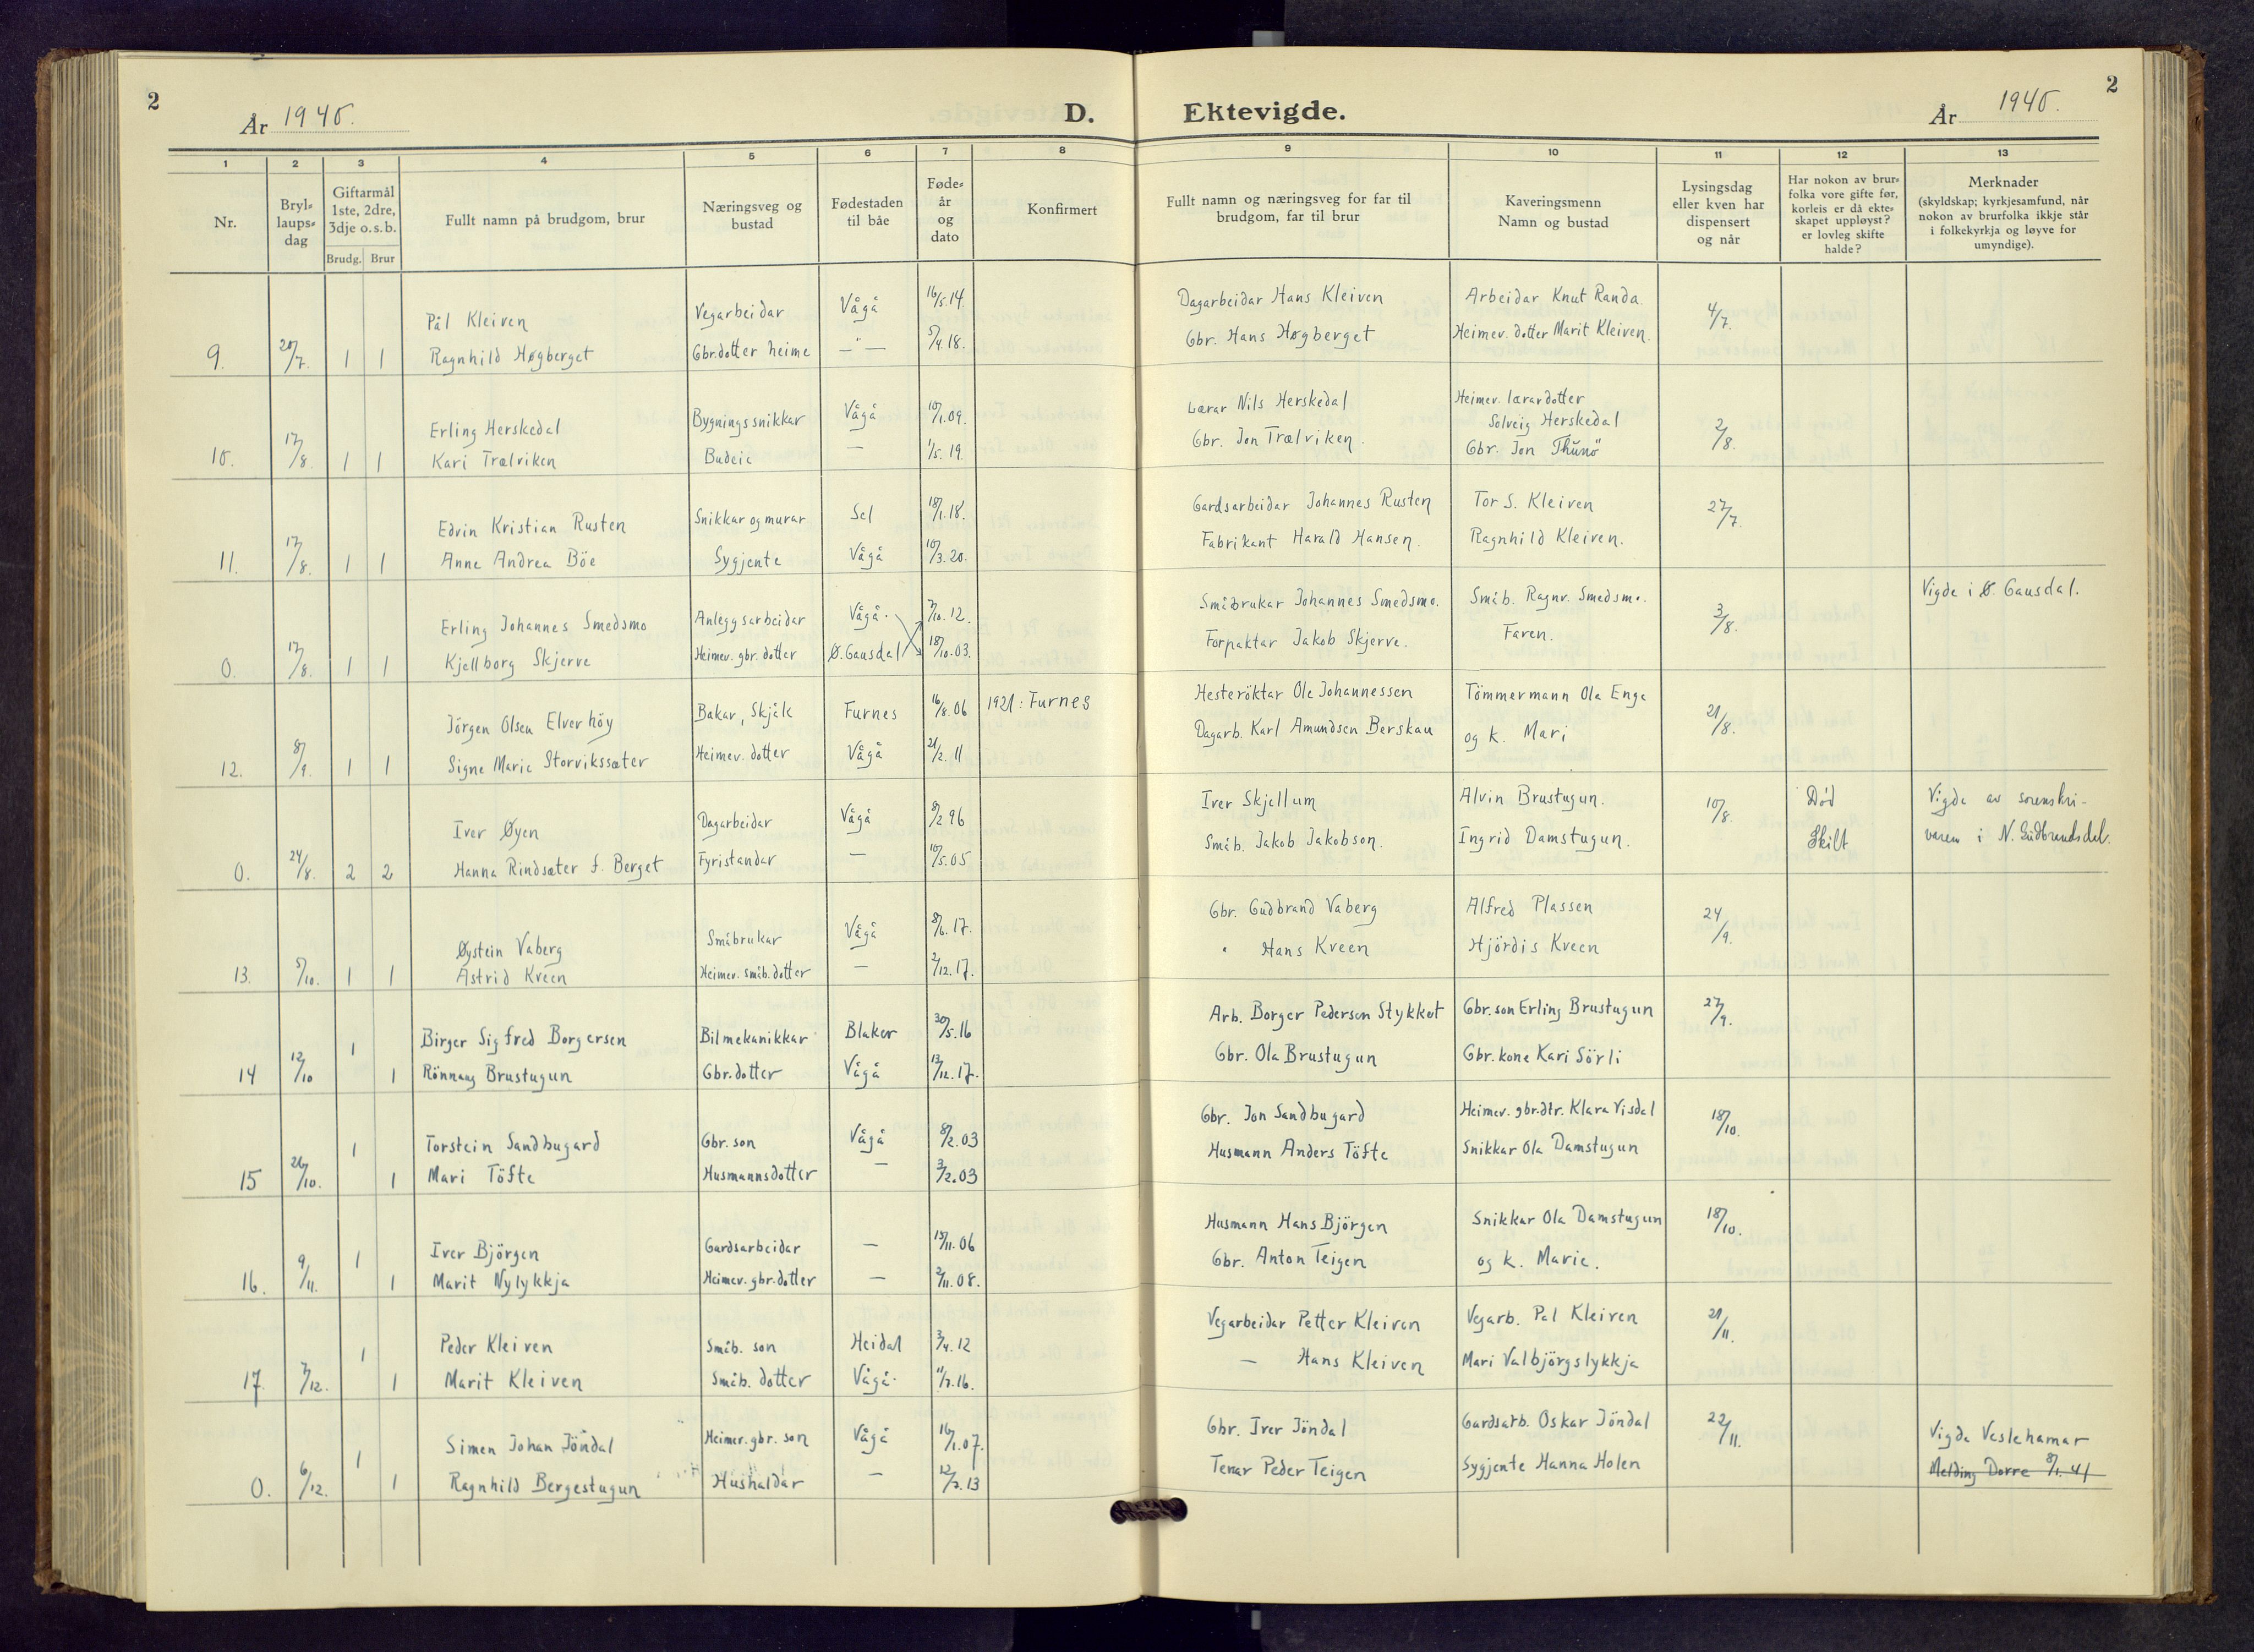 2
År 1940.
D.
Ektevigde.
År 1940.
2
1 2 3 4 5 6 7 8 9 10 11 12 13
Nr.
Bryl-
laups-
dag
Giftarmål
1ste, 2dre,
3dje o.s.b.
Brudg. Brur
Fullt namn på brudgom, brur
Næringsveg og
bustad
Fødestaden
til båe
Føde-
år
og
dato
Konfirmert
Fullt namn og næringsveg for far til
brudgom, far til brur
Kaveringsmenn
Namn og bustad
Lysingsdag
eller kven har
dispensert
og når
Har nokon av brur-
folka vore gifte før,
korleis er då ekte-
skapet uppløyst?
er lovleg skifte
halde?
Merknader
(skyldskap; kyrkjesamfund, når
nokon av brurfolka ikkje står
i folkekyrkja og løyve for
umyndige).
Pål Kleiven Vegarbeidar Vågå 16/5.14. Dagarbeidar Hans Kleiven Arbeidar Knut Randa. 4/7.
9. 20/7. 1 1 Ragnhild Høgberget Gbr.dotter heime —"— 5/4.18. Gbr. Hans Høgberget Heimev. dotter Marit Kleiven.
Erling Herskedal Bygningssnikkar Vågå 10/1.09. Lærar Nils Herskedal Heimev. lærardotter
Solveig Herskedal 2/8.
10. 17/8. 1 1 Kari Trælviken Budeie — 1/5.19. Gbr. Jon Trælviken. Gbr. Jon
Edvin Kristian Rusten Snikkar og murar Sel 18/1.18. Gardsarbeidar Johannes Rusten Tor S. Kleiven 27/7.
11. 17/8. 1 1 Anne Andrea Böe Sygjente Vågå 10/3.20. Fabrikant Harald Hansen. Ragnhild Kleiven.
Erling Johannes Smedsmo Anleggsarbeidar Vågå. 7/10.12. Småbrukar Johannes Smedsmo. Småb. Ragnv. Smedsmo. 3/8. Vigde i Ø. Gausdal.
0. 17/8. 1 1 Kjellborg Skjerve Heimev. gbr. dotter Ø. Gausdal 18/10.03. Forpaktar Jakob Skjerve. Faren.
Jörgen Olsen Elverhöy Bakar, Skjåk Furnes 16/8.06 1921: Furnes Hesteröktar Ole Johannessen Tömmermann Ola Enga 21/8.
12. 8/9. 1 1 Signe Marie Storvikssæter Heimev. dotter Vågå 21/2.11 Dagarb. Karl Amundsen Berskau og k. Mari
Iver Øyen Dagarbeidar Vågå 8/2 96 Iver Skjellum Alvin Brustugun. 10/8. Död Vigde av sorenskri-
0. 24/8. 2 2 Hanna Rindsæter f. Berget Fyristandar — 10/5.05 Småb. Jakob Jakobson. Ingrid Damstugun. Skilt varen i N. Gudbrandsdal.
Øystein Vaberg Småbrukar Vågå 8/6.17. Gbr. Gudbrand Vaberg Alfred Plassen 24/9.
13. 5/10. 1 1 Astrid Kveen Heimev. småb. dotter — 2/12.17. " Hans Kveen Hjördis Kveen
Birger Sigfred Borgersen Bilmekanikkar Blaker 30/5.16 Arb. Borger Pedersen Stykket Gbr.son Erling Brustugun 27/9.
14 12/10 1 1 Rönnaug Brustugun Gbr.dotter Vågå 13/12.17. Gbr. Ola Brustugun Gbr.kone Kari Sörli
Torstein Sandbugard Gbr.son Vågå 8/2.03 Gbr. Jon Sandbugard Heimev. gbr.dtr. Klara Visdal 18/10.
15 26/10. 1 1 Mari Töfte Husmannsdotter — 3/2.03 Husmann Anders Töfte Snikkar Ola Damstugun
Iver Björgen Gardsarbeidar — 15/11.06 Husmann Hans Björgen Snikkar Ola Damstugun 18/10.
16. 9/11. 1 1 Marit Nylykkja Heimev. gbr.dotter — 2/11.08. Gbr. Anton Teigen og k. Marie.
Peder Kleiven Småb. son Heidal 3/4.12 Vegarbeidar Petter Kleiven Vegarb. Pål Kleiven 21/11.
17. 7/12. 1 1 Marit Kleiven Småb. dotter Vågå. 11/7.16. — Hans Kleiven Mari Valbjörgslykkja
Simen Johan Jöndal Heimev. gbr. son Vågå 16/1.07. Gbr. Iver Jöndal Gardsarb. Oskar Jöndal 22/11. Vigde Veslehamar
0. 6/12. 1 1 Ragnhild Bergestugun Hushaldar — 12/7.13 Tenar Peder Teigen Sygjente Hanna Holen Melding Dovre 8/1.41